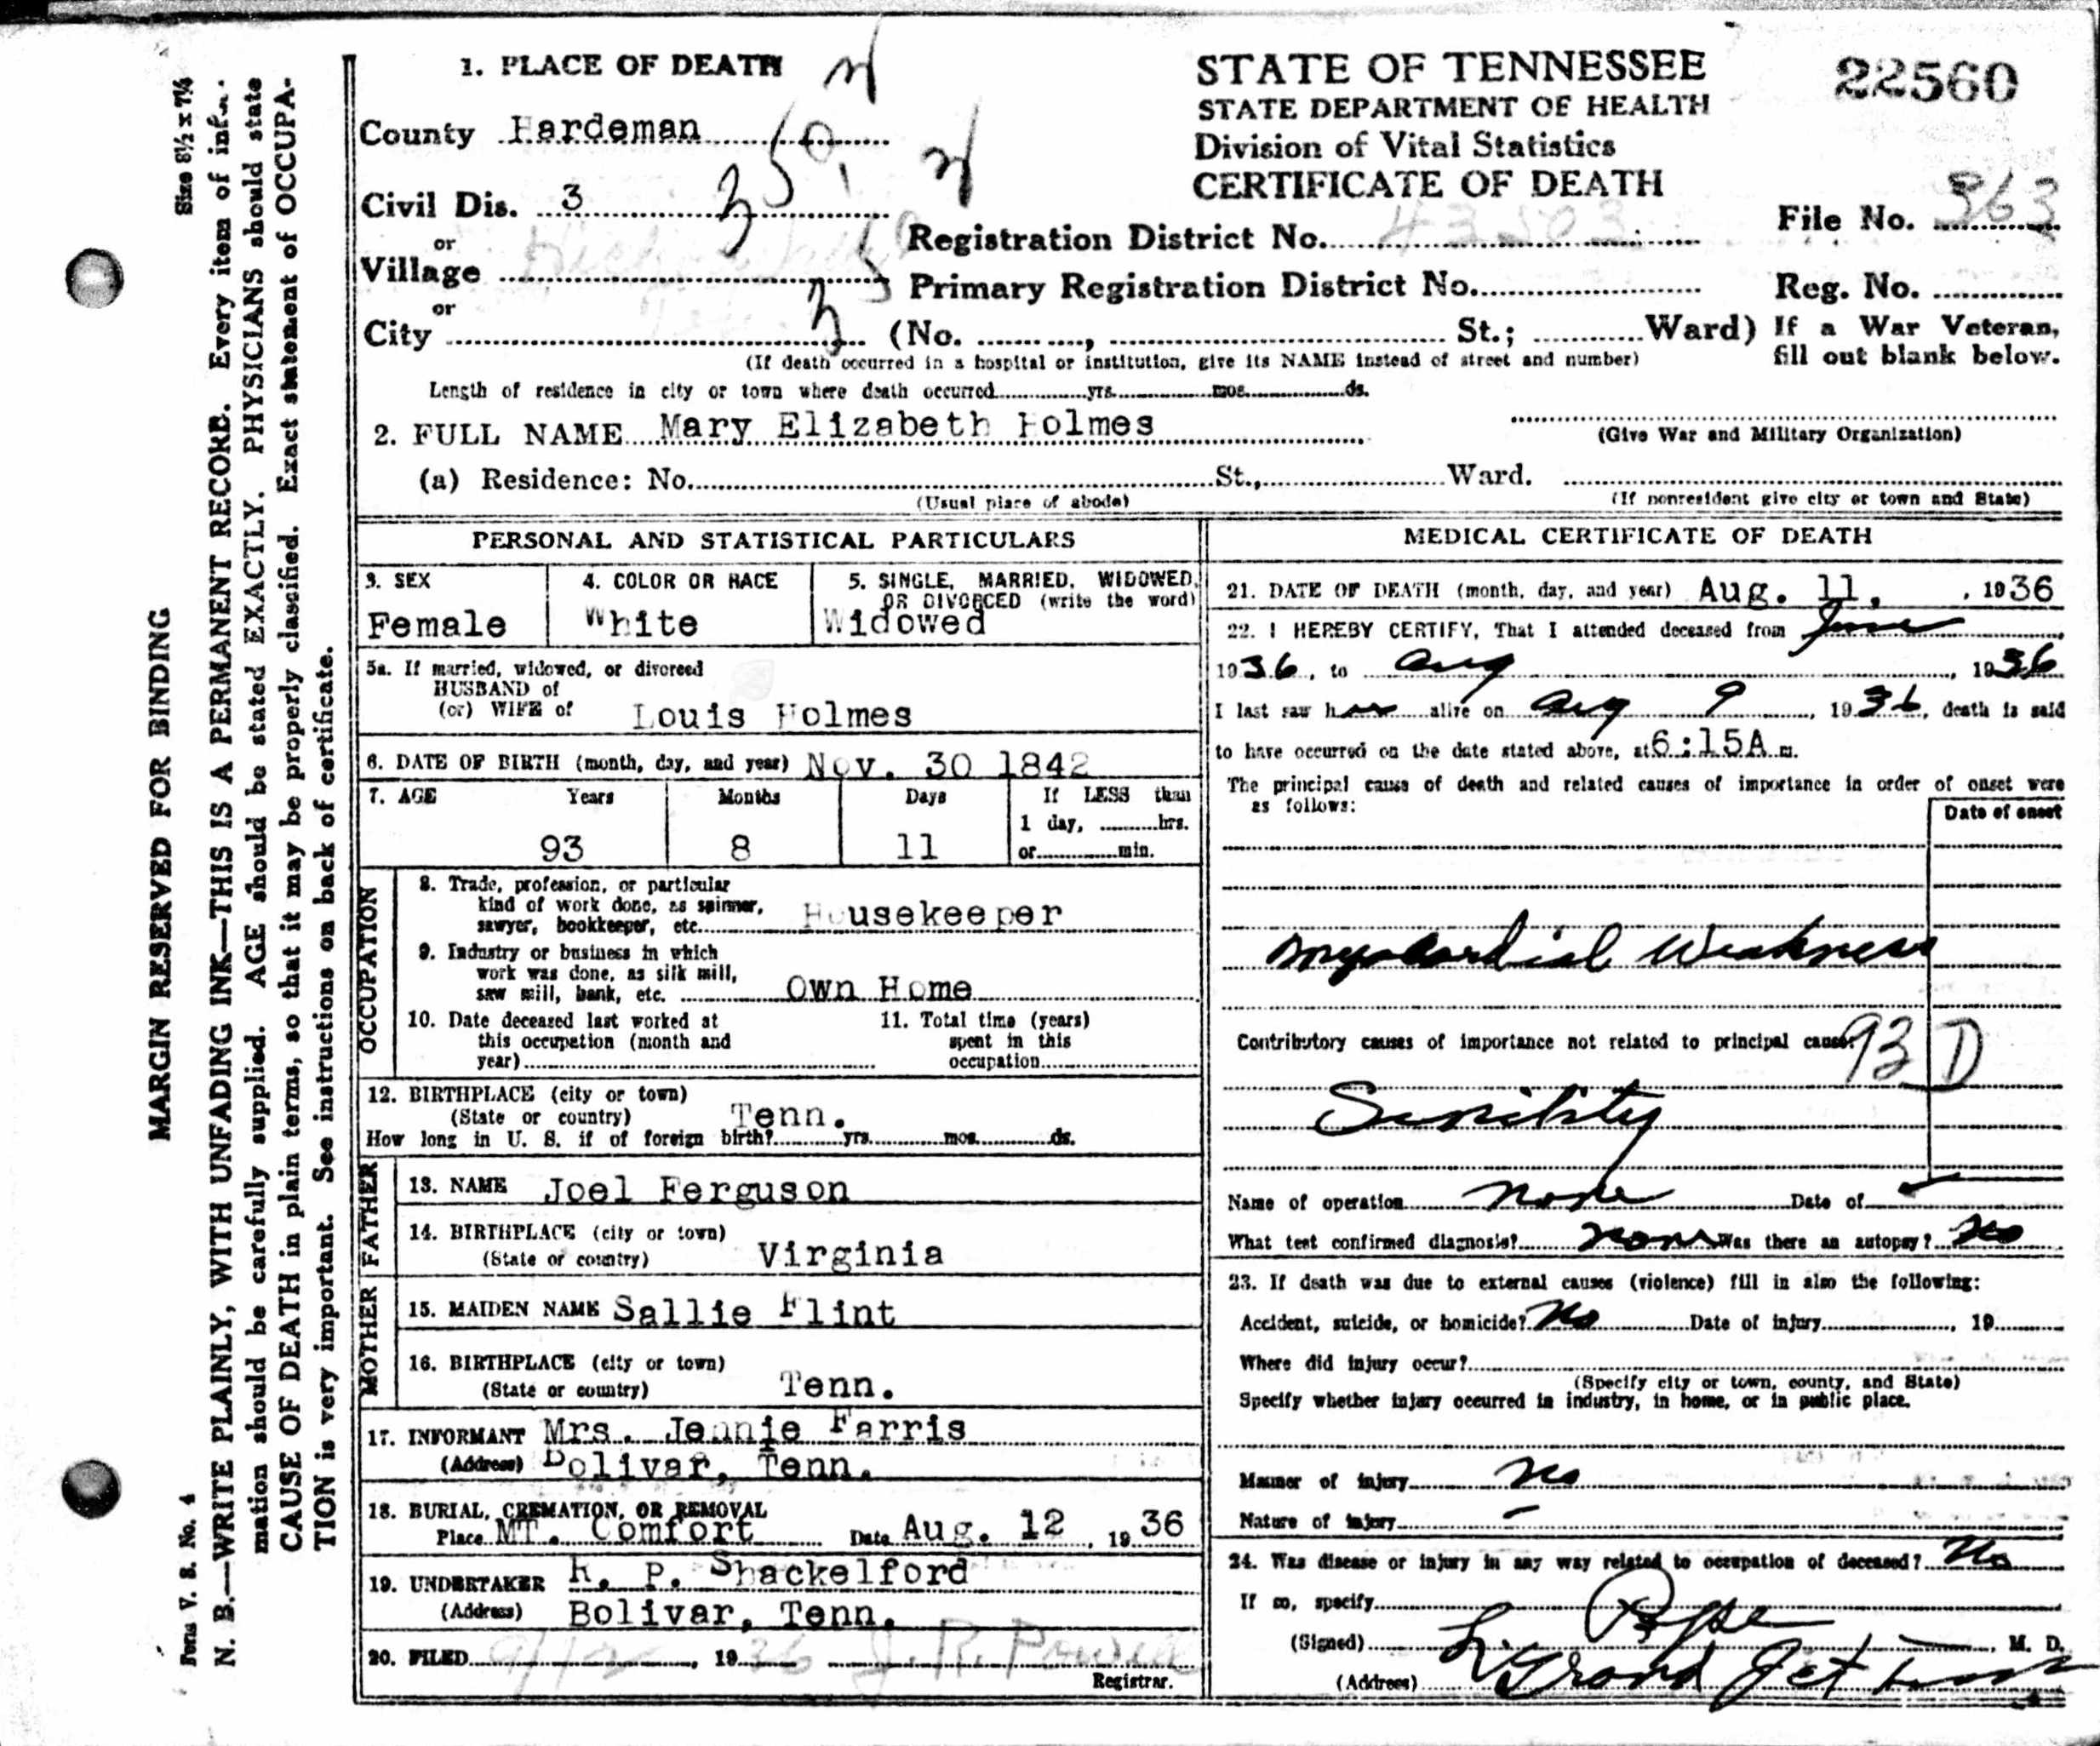 1. PLACE OF DEATH
STATE OF TENNESSEE
STATE DEPARTMENT OF HEALTH
Division of Vital Statistics
CERTIFICATE OF DEATH
22560
County Hardeman
Civil Dis. 3
or
Village
or
City
Registration District No. 43503
File No. 363
Primary Registration District No.
Reg. No.
(No. ........, ........ St.; ........ Ward)
If a War Veteran,
fill out blank below.
(If death occurred in a hospital or institution, give its NAME instead of street and number)
Length of residence in city or town where death occurred........yrs........mos........ds.
2. FULL NAME Mary Elizabeth Holmes
(Give War and Military Organization)
(a) Residence: No. ........ St., ........ Ward.
(Usual place of abode)
(If nonresident give city or town and State)
PERSONAL AND STATISTICAL PARTICULARS
3. SEX
Female
4. COLOR OR RACE
White
5. SINGLE, MARRIED, WIDOWED,
OR DIVORCED (write the word)
Widowed
5a. If married, widowed, or divorced
HUSBAND of
(or) WIFE of Louis Holmes
6. DATE OF BIRTH (month, day, and year) Nov. 30 1842
7. AGE Years Months Days If LESS than
1 day, ........hrs.
93 8 11 or........min.
OCCUPATION
8. Trade, profession, or particular
kind of work done, as spinner,
sawyer, bookkeeper, etc. Housekeeper
9. Industry or business in which
work was done, as silk mill,
saw mill, bank, etc. Own Home
10. Date deceased last worked at
this occupation (month and
year)
11. Total time (years)
spent in this
occupation
12. BIRTHPLACE (city or town)
(State or country) Tenn.
How long in U. S. if of foreign birth?........yrs........mos........ds.
FATHER
13. NAME Joel Ferguson
14. BIRTHPLACE (city or town)
(State or country) Virginia
MOTHER
15. MAIDEN NAME Sallie Flint
16. BIRTHPLACE (city or town)
(State or country) Tenn.
17. INFORMANT Mrs. Jennie Farris
(Address) Bolivar, Tenn.
18. BURIAL, CREMATION, OR REMOVAL
Place MT. Comfort Date Aug. 12, 1936
19. UNDERTAKER R. P. Shackelford
(Address) Bolivar, Tenn.
20. FILED 9/12, 1936 J. R. Powell
Registrar.
MEDICAL CERTIFICATE OF DEATH
21. DATE OF DEATH (month, day, and year) Aug. 11, , 1936
22. I HEREBY CERTIFY, That I attended deceased from June
1936, to Aug, 1936
I last saw her alive on Aug 9, 1936, death is said
to have occurred on the date stated above, at 6:15A m.
The principal cause of death and related causes of importance in order of onset were
as follows:
Date of onset
Myocardial Weakness
Contributory causes of importance not related to principal cause:
93 D
Senility
Name of operation none Date of
What test confirmed diagnosis? none Was there an autopsy? No
23. If death was due to external causes (violence) fill in also the following:
Accident, suicide, or homicide? No Date of injury........, 19....
Where did injury occur?
(Specify city or town, county, and State)
Specify whether injury occurred in industry, in home, or in public place.
Manner of injury No
Nature of injury -
24. Was disease or injury in any way related to occupation of deceased? No
If so, specify
(Signed) Pope, M. D.
(Address)
MARGIN RESERVED FOR BINDING
Size 8½ x 7¼
Form V. S. No. 4
N. B.—WRITE PLAINLY, WITH UNFADING INK—THIS IS A PERMANENT RECORD. Every item of infor-
mation should be carefully supplied. AGE should be stated EXACTLY. PHYSICIANS should state
CAUSE OF DEATH in plain terms, so that it may be properly classified. Exact statement of OCCUPA-
TION is very important. See instructions on back of certificate.